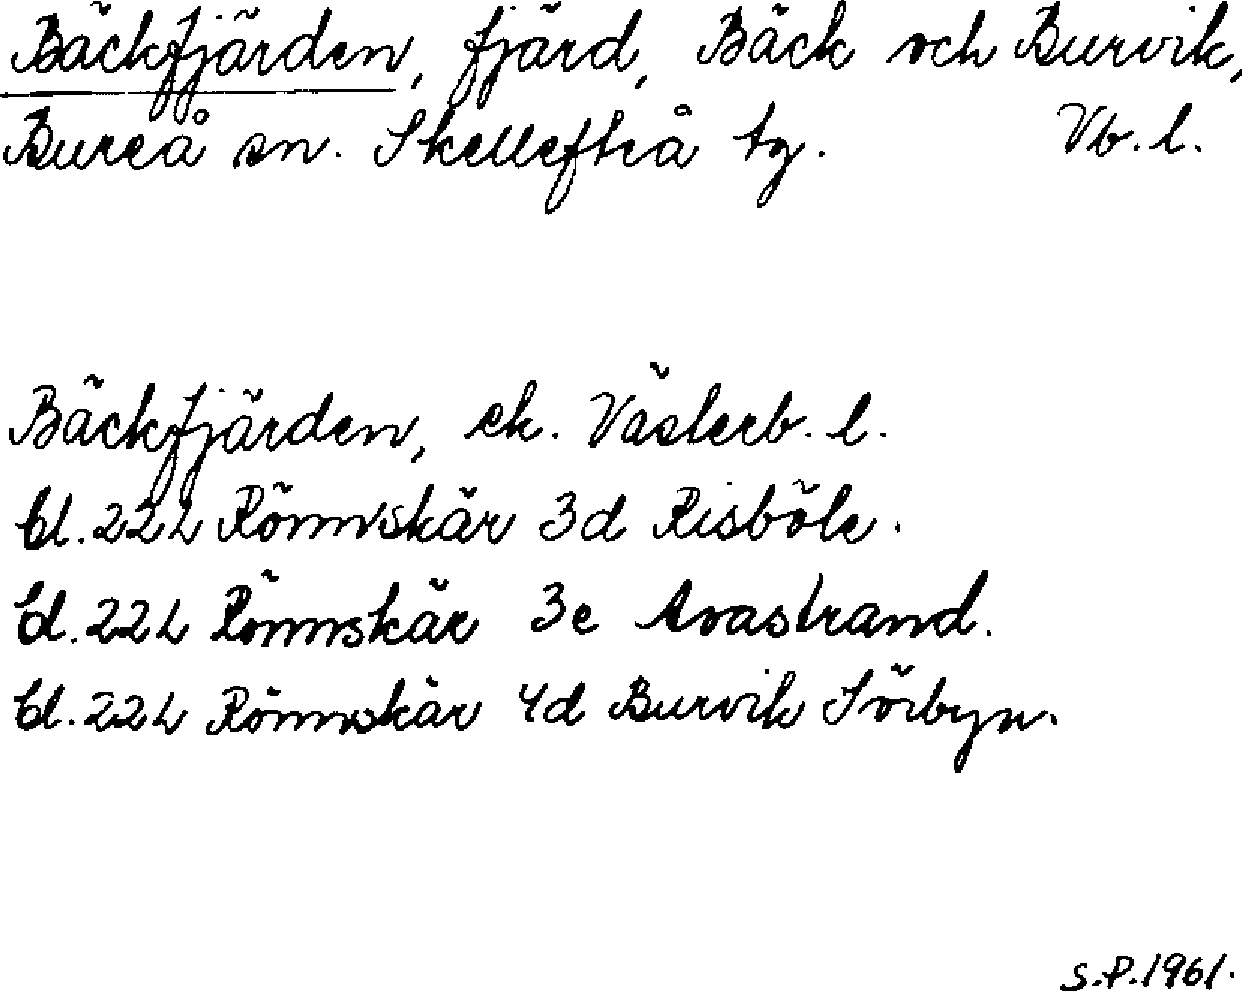 Bäckfjärden, fjärd, Bäck och Burvik,
Bureå sn. Skellefteå tg. Vb. l.
Bäckfjärden, ek. Västerb. l.
bl. 22L Rönnskär 3d Risböle.
bl. 22L Rönnskär 3e Avastrand.
bl. 22L Rönnskär 4d Burvik Sörbyn.
S.P. 1961.